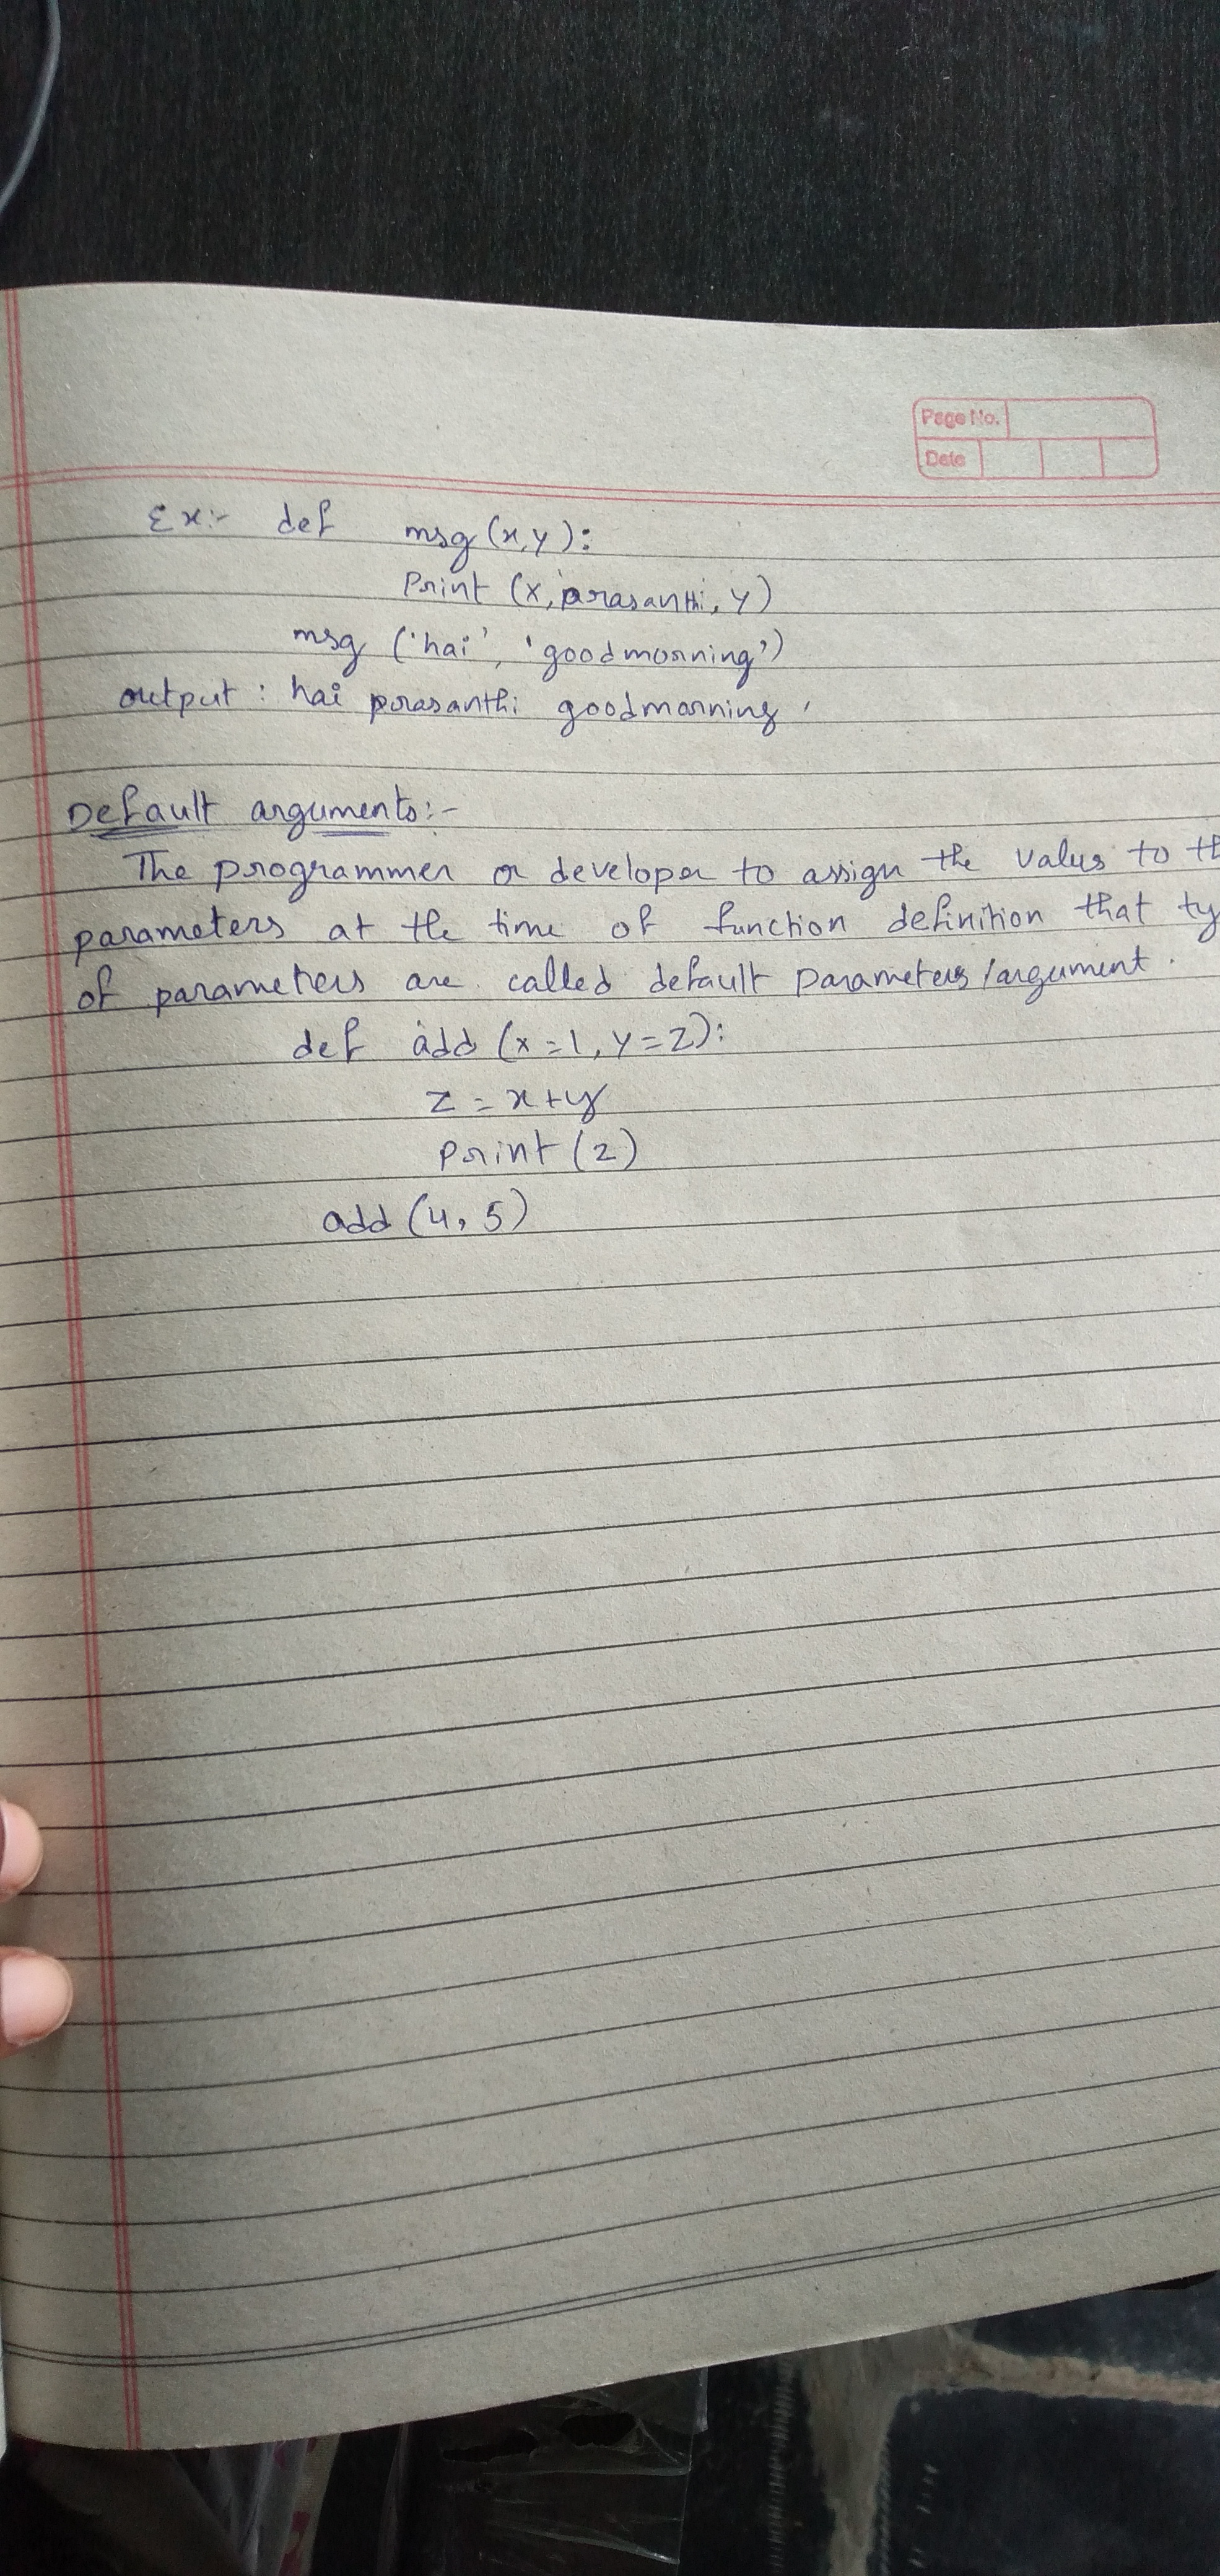 Page No.
Date
Ex:- def msg (x,y):
Print (x, prasanthi, y)
msg ('hai', 'goodmorning')
output : hai prasanthi goodmorning
Default arguments:-
The programmer or developer to assign the values to th
parameters at the time of function definition that ty
of parameters are called default parameters/argument.
def add (x=1, y=2):
z = x+y
Print (z)
add (4, 5)